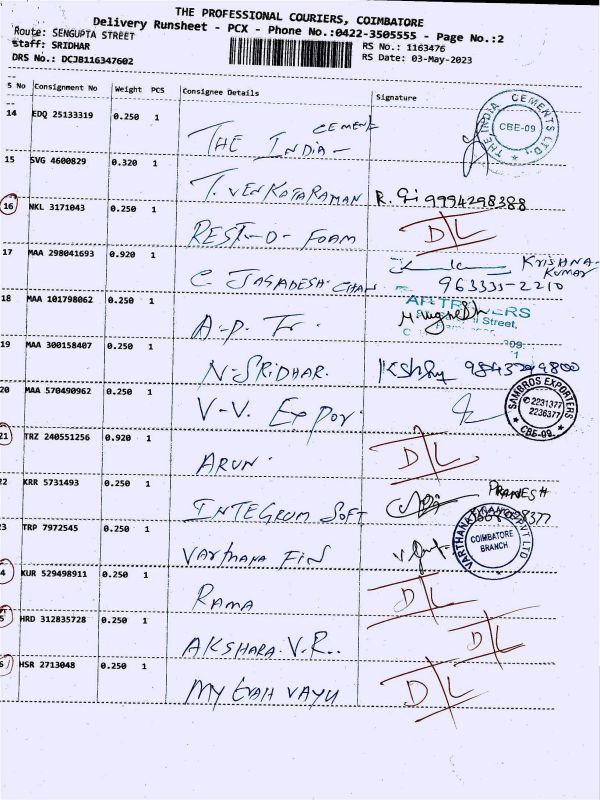 THE PROFESSIONAL COURIERS, COIMBATORE
Delivery Runsheet - PCX - Phone No.:0422-3505555 - Page No.:2
Route: SENGUPTA STREET
RS No.: 1163476
Staff: SRIDHAR
RS Date: 03-May-2023
DRS No.: DCJB116347602
S No Consignment No Weight PCS Consignee Details Signature
14 EDQ 25133319 0.250 1 THE INDIA CEMENT
THE INDIA CEMENTS LTD. CBE-09
15 SVG 4600829 0.320 1 T. VENKATARAMAN R. 9994298388
16 NKL 3171043 0.250 1 REST-O-FOAM D/L
17 MAA 298041693 0.920 1 C. JAGADESH CHAN KRISHNA-KUMAR 963335-2210
18 MAA 101798062 0.250 1 A-P. Tr. Street,
19 MAA 300158407 0.250 1 N-SRIDHAR.
20 MAA 570490962 0.250 1 V-V. Expor
SAMBROS EXPORTERS 2231377 2236377 CBE-09.
21 TRZ 240551256 0.920 1 ARUN. D/L
22 KRR 5731493 0.250 1 INTEGRUM SOFT PRANESH
23 TRP 7972545 0.250 1 Varthana FIN
COIMBATORE BRANCH PVT LTD
4 KUR 529498911 0.250 1 RAMA D/L
5 HRD 312835728 0.250 1 AKSHARA. V.R.. D/L
6 HSR 2713048 0.250 1 D/L